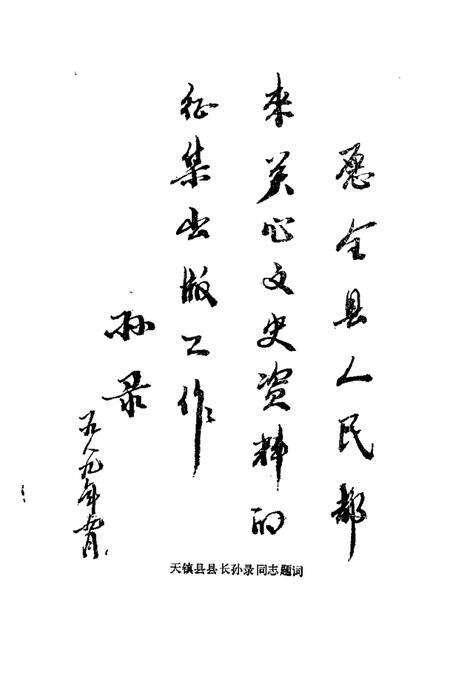 愿全县人民都
来关心文史资料的
征集出版工作
孙录
八九年
天镇县县长孙录同志题词